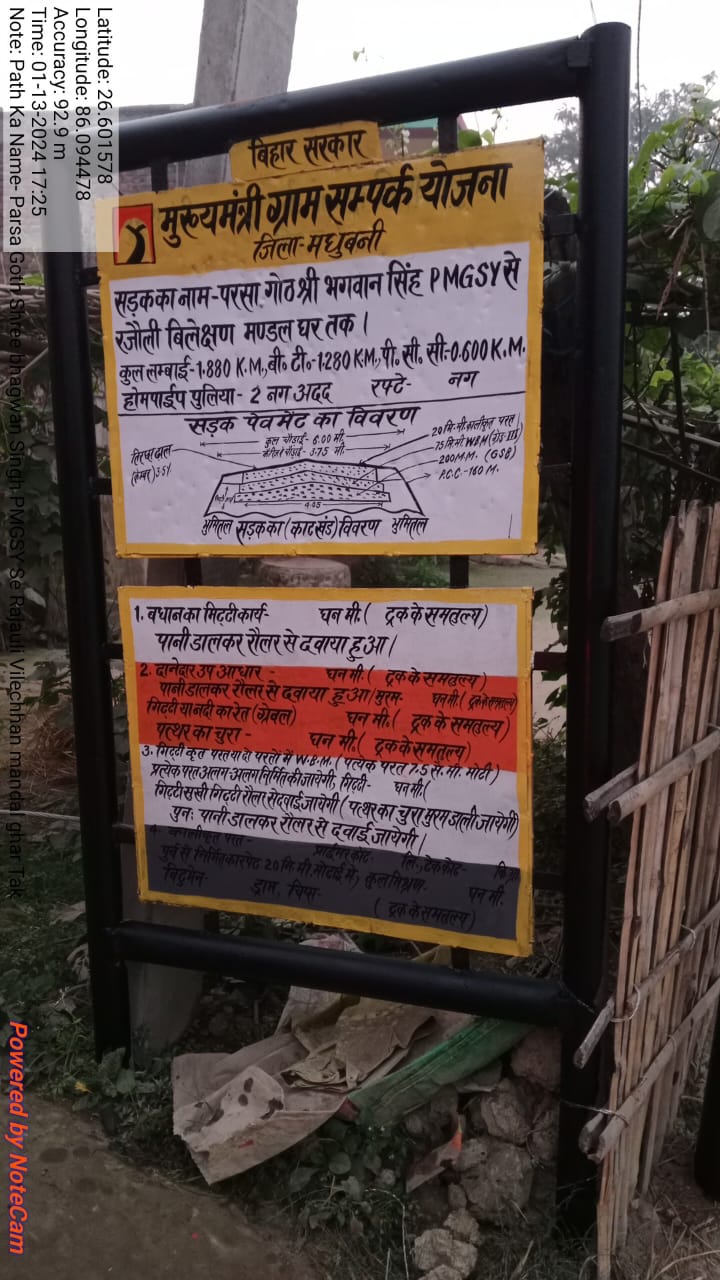 Latitude: 26.601578
Longitude: 86.094478
Accuracy: 92.9 m
Time: 01-13-2024 17:25
Note: Path Ka Name- Parsa Goth Shree bhagwan Singh PMGSY Se Rajauli Vilechhan mandal ghar Tak
बिहार सरकार
मुख्यमंत्री ग्राम सम्पर्क योजना
जिला-मधुबनी
सड़क का नाम-परसा गोठ श्री भगवान सिंह PMGSY से
रजौली बिलेक्षण मण्डल घर तक।
कुल लम्बाई-1.880 K.M., बी. टी.-1.280 K.M., पी. सी. सी.-0.600 K.M.
होमपाईप पुलिया- 2 नग अदद रफ्टे- नग
सड़क पेवमेंट का विवरण
कुल चौड़ाई- 6.00 मी.
3.75 मी.
20 मि.मी. कालीकृत परत
75 मि.मी W.B.M (ग्रेड-III)
200 M.M. (GSB)
P.C.C-160 M.
4.05
भुमितल सड़क का (काटखंड) विवरण भुमितल
1. बधान का मिट्टी कार्य- घन मी. ( ट्रक के समतुल्य)
पानी डालकर रौलर से दवाया हुआ।
2. दानेदार उप आधार - घन मी. ( ट्रक के समतुल्य)
पानी डालकर रौलर से दवाया हुआ/मुरम- घन मी. ( ट्रक के समतुल्य)
मिट्टी या नदी का रेत (ग्रेवल) घन मी. ( ट्रक के समतुल्य)
पत्थर का चुरा - घन मी. ( ट्रक के समतुल्य)
3. मिट्टी कृत परत या दो परतों में W.B.M. ( प्रत्येक परत 7.5 से.मी. मोटी)
प्रत्येक परत अलग-अलग निर्मित की जायेगी, मिट्टी- घन मी. (
मिट्टी सुखी मिट्टी रौलर से दवाई जायेगी ( पत्थर का चुरा मुरम डाली जायेगी)
पुनः पानी डालकर रौलर से दवाई जायेगी।
4. परत- प्राईमर कोट- लि., टेक कोट-
पुर्व से निर्मित कारपेट 20 मि.मी. मोटाई में, कुल मिश्रण- घन मी.
बिटुमेन- ड्राम, चिप्स- ( ट्रक के समतुल्य)
Powered by NoteCam